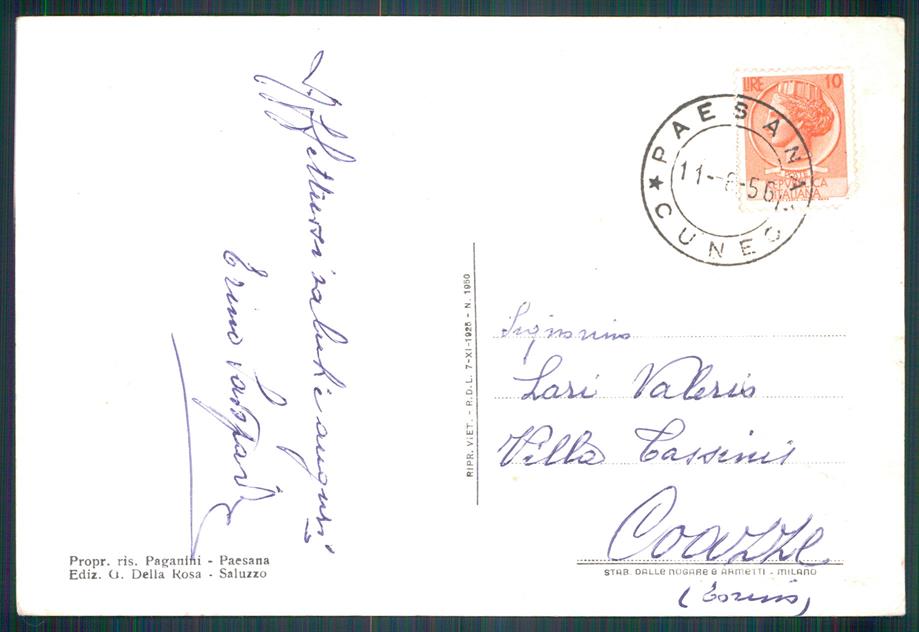 LIRE 10
POSTE
REPVBBLICA
ITALIANA
★ PAESANA
CUNEO
11--6-56
Affettuosi saluti e auguri
RIPR. VIET. - R.D.L. 7-XI-1926 - N. 1950
Signorina
Lari Valeria
Villa Cassinis
Coazze
(Torino)
Propr. ris. Paganini - Paesana
Ediz. G. Della Rosa - Saluzzo
STAB. DALLE NOGARE & ARMETTI - MILANO